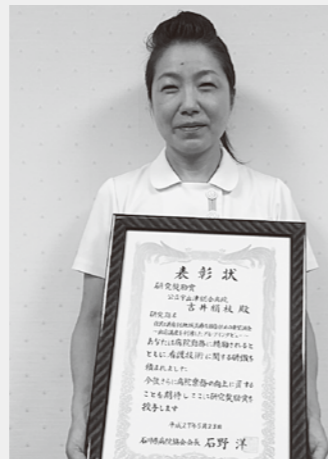 表彰状
研究奨励賞
吉井 絹枝 殿
研究題名
あなたは病院勤務に精励されると
ともに看護技術に関する研鑽を
積まれました
今後さらに病院業務の向上に資する
ことを期待しここに研究奨励賞を
授与します
平成27年5月23日
石川県病院協会会長 石野 洋